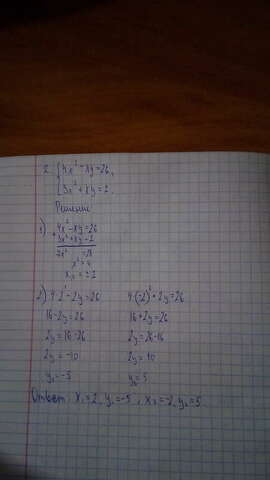 2. { 4x² - xy = 26,
{ 3x² + xy = 2.
Решение
1) 4x² - xy = 26
+ 3x² + xy = 2
7x² = 28
x² = 4
x₁,₂ = ±2
2) 4·2² - 2y = 26 4·(-2)² + 2y = 26
16 - 2y = 26 16 + 2y = 26
2y = 16 - 26 2y = 26 - 16
2y = -10 2y = 10
y₁ = -5 y₂ = 5
Ответ: x₁ = 2, y₁ = -5, x₂ = -2, y₂ = 5.